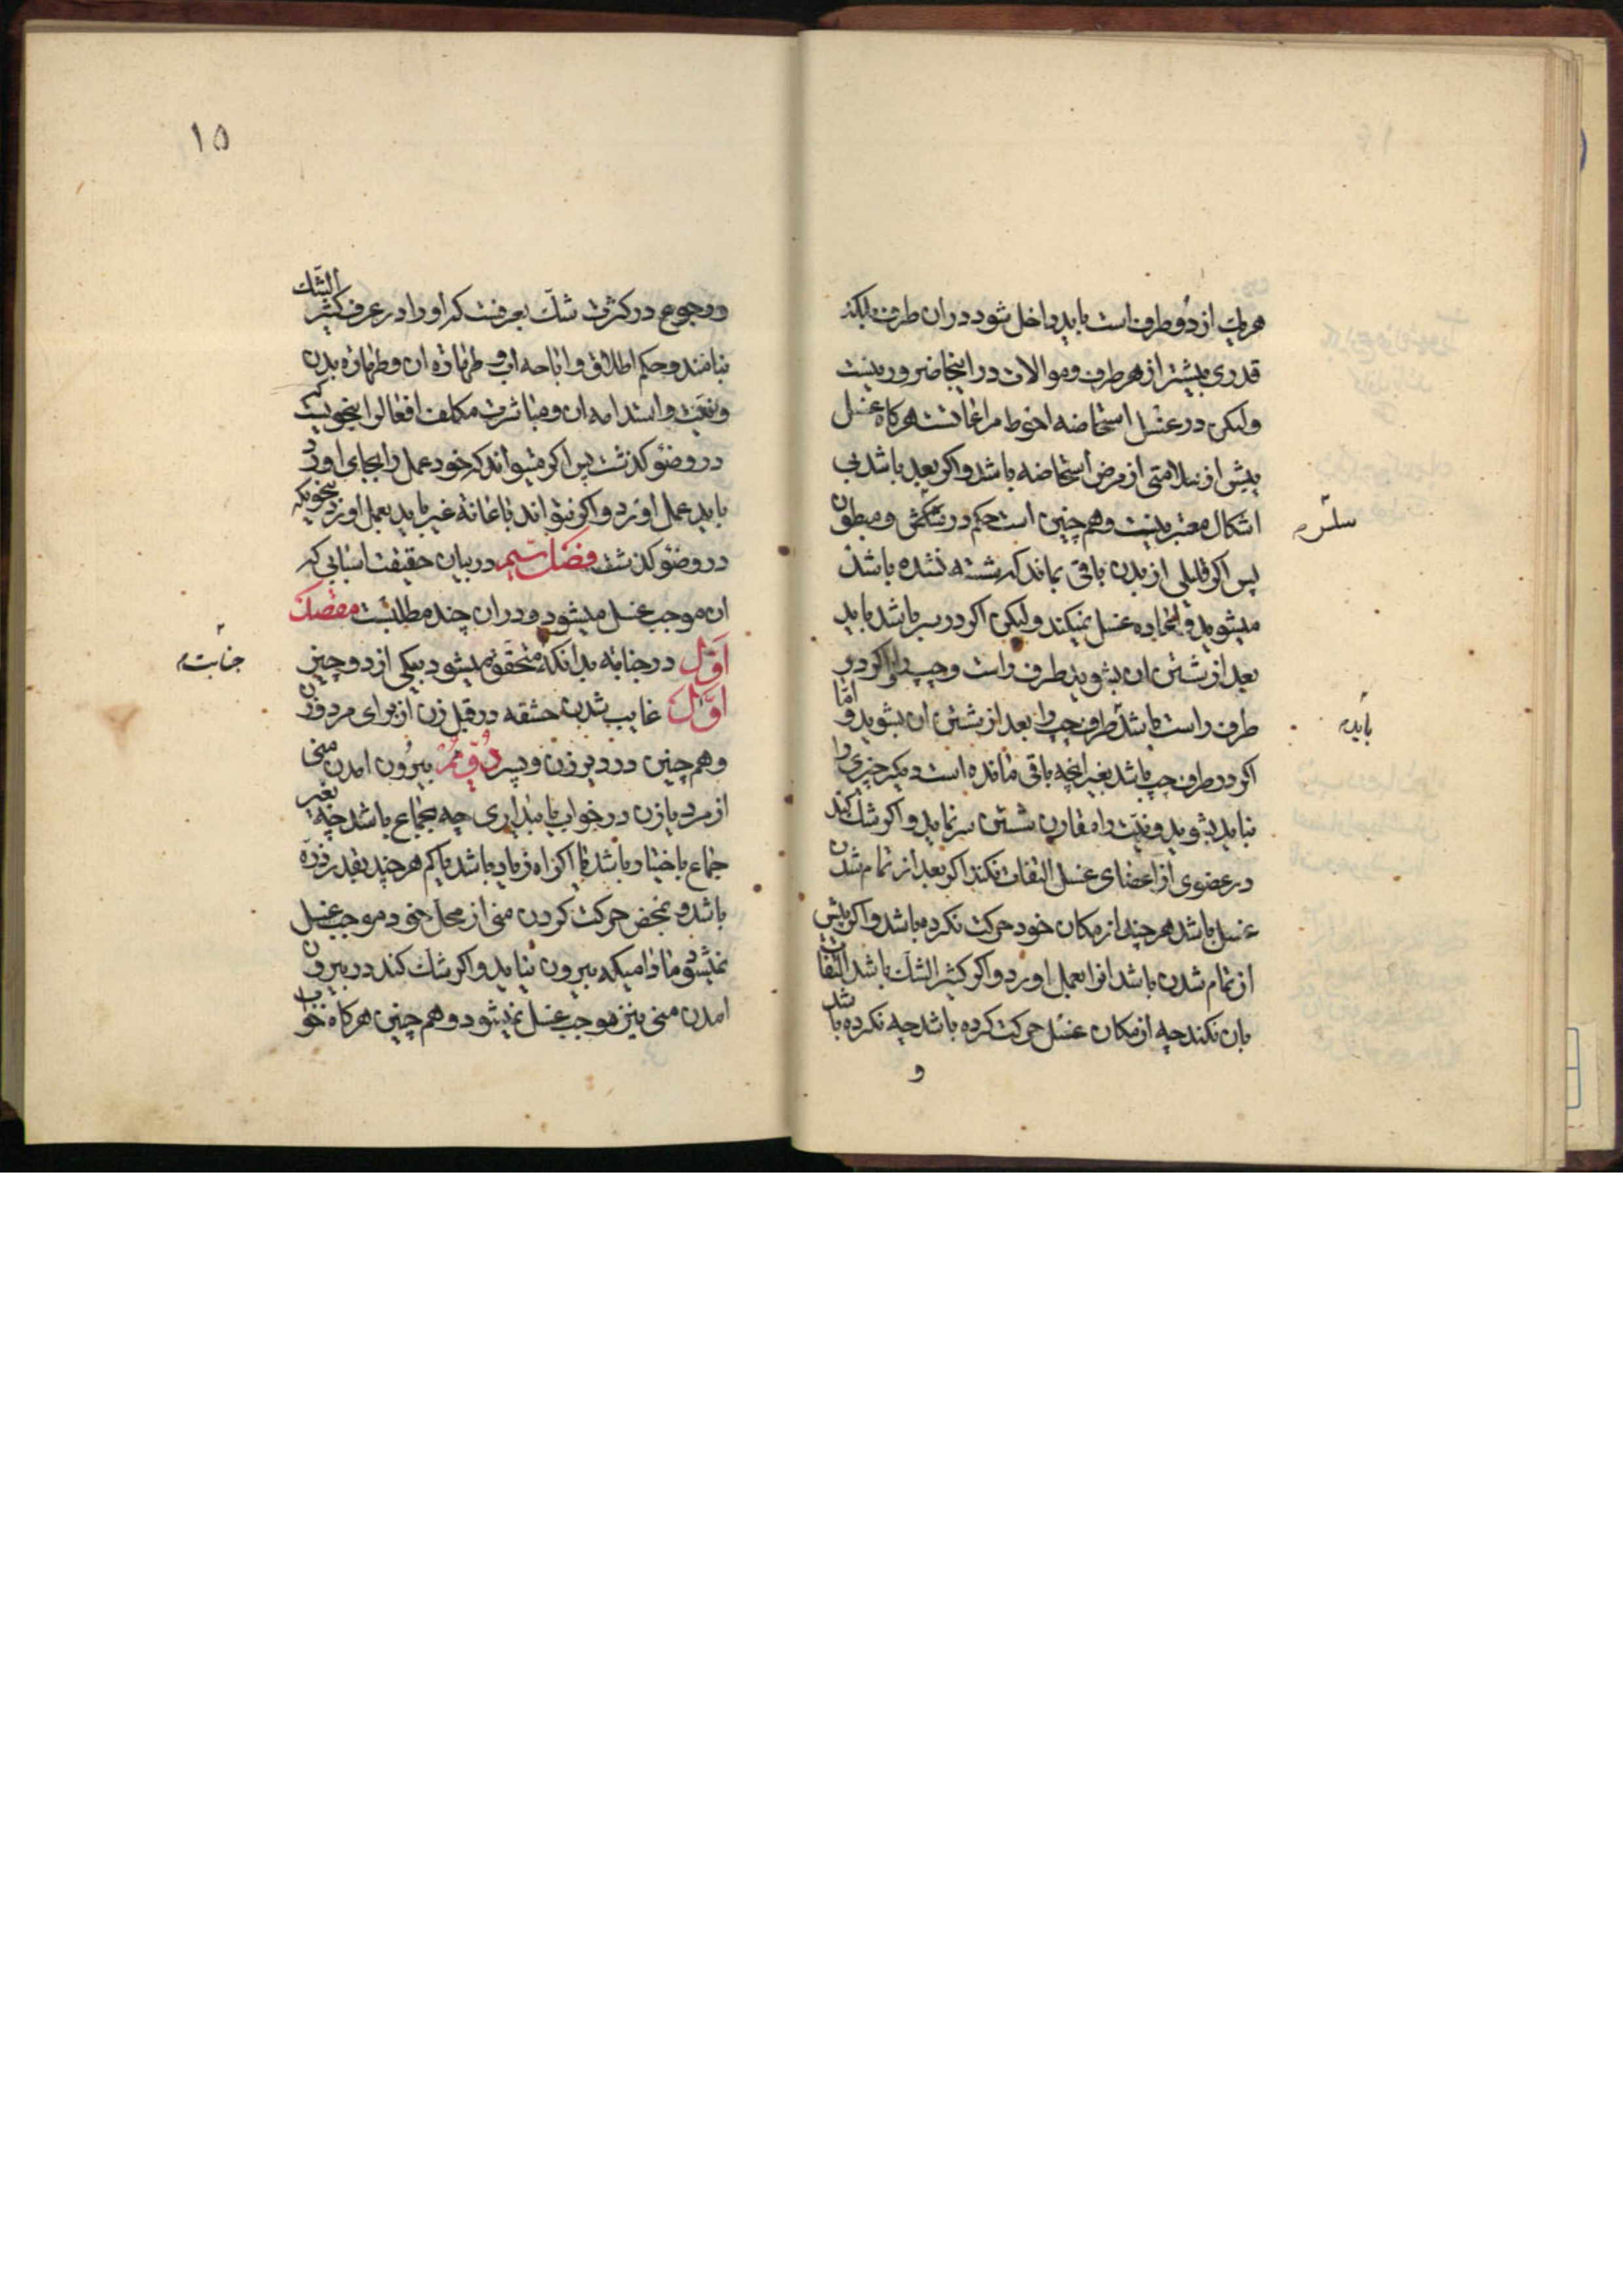 هریک از دو طرف است باید داخل شود در ان طرف بلکه
قدری بیشتر از هر طرف و موالات در اینجا ضرور نیست
ولیکن در غسل استحاضه احوط مراعاتست هرکاه غسل
پیش از سلامتی از مرض استحاضه باشد و اکر بعد باشد بی
اشکال معتبر نیست و هم چنین است حکم در و مبطون
سلس
پس اکر قلیلی از بدن باقی بماند که شسته نشده باشد
میشوید و اعاده غسل نمیکند ولیکن اکر در سر باشد باید
بعد از شستن ان بشوید طرف راست و چپ را و اکر در
طرف راست باشد طرف چپ را بعد از شستن ان بشوید و امّا
باید
اکر در طرف چپ باشد بغیر انچه باقی مانده است دیکر چیزی را
نباید بشوید و نیّت را مقارن شستن سر نماید و اکر شک کند
در عضوی از اعضای غسل التفات نکند اکر بعد از تمام شدن
غسل باشد هرچند از مکان خود حرکت نکرده باشد و اکر پیش
از تمام شدن باشد انرا بعمل اورد و اکر کثیر الشک باشد التفات
بان نکند چه از مکان غسل حرکت کرده باشد چه نکرده باشد
و
۱۵
و رجوع در کثرت شکّ بعرفست که او را در عرف کثیر الشک
بنامند و حکم اطلاق و اباحه اب و طهارة ان و طهارة بدن
و نیّت و استدامه ان و مباشرت مکلف افعال را بنحویست که
در وضو کذشت پس اکر میتواند که خود عمل را بجای اورد
باید عمل اورد و اکر نتواند باعانة غیر باید بعمل اورد بنحویکه
در وضو کذشت فصل سیم در بیان حقیقت اسبابی که
ان موجب غسل میشود و در ان چند مطلبست مقصد
اوّل در جنابه بدانکه متحقق میشود بیکی از دو چیز
جنابت
اوّل غایب شدن حشفه در قبل زن از برای مرد و زن
و هم چنین در دبر زن و پسر دوّیم بیرون امدن منی
از مرد یا زن در خواب یا بیداری چه بجماع باشد چه بغیر
جماع باختیار باشد یا اکراه زیاد باشد یا کم هرچند بقدر ذرّه
باشد و بمحض حرکت کردن منی از محل خود موجب غسل
نمیشود مادامیکه بیرون نیاید و اکر شک کند در بیرون
امدن منی نیز موجب غسل نمیشود و هم چنین هرکاه خواب